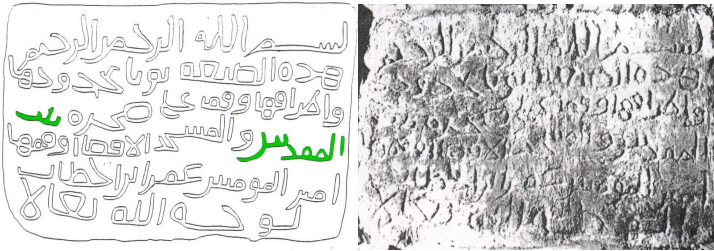 بسم الله الرحمن الرحيم
هذه الضيعه نوبا بحدودها
واطرافها وقف علي صخره بيت
المقدس والمسجد الاقصا اوقفها
امير المومنين عمر ابن الخطاب
لوجه الله تعالا